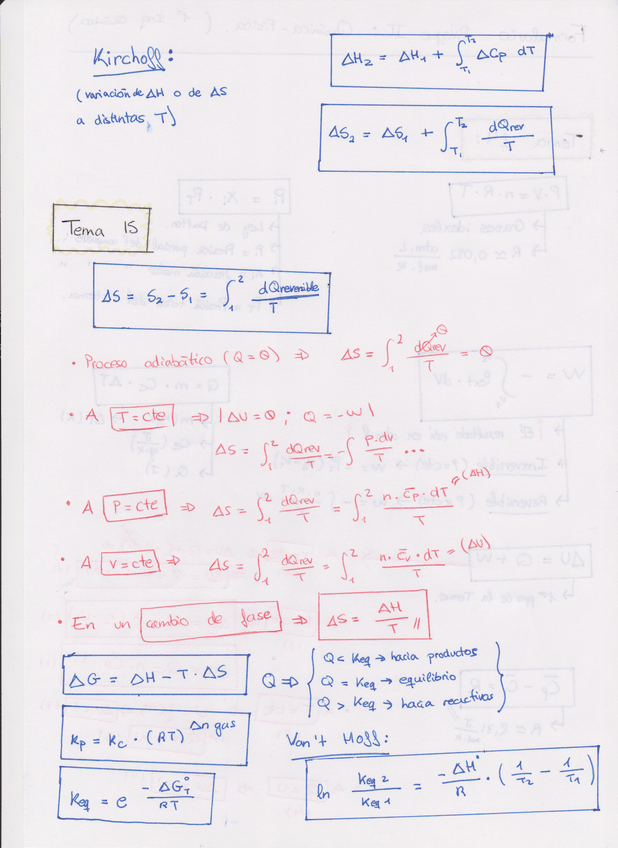 Kirchoff:
(variación de ΔH o de ΔS
a distintas T)
ΔH₂ = ΔH₁ + ∫_{T₁}^{T₂} ΔCp dT
ΔS₂ = ΔS₁ + ∫_{T₁}^{T₂} dQrev / T
Tema 15
ΔS = S₂ - S₁ = ∫₁² dQreversible / T
• Proceso adiabático (Q=0) ⇒ ΔS = ∫₁² dQrev / T = 0
• A T=cte ⇒ | ΔU=0 ; Q=-W |
ΔS = ∫₁² dQrev / T = - ∫ P·dv / T ...
• A P=cte ⇒ ΔS = ∫₁² dQrev / T = ∫₁² n·c̄p·dT / T (ΔH)
• A V=cte ⇒ ΔS = ∫₁² dQrev / T = ∫₁² n·c̄v·dT / T (ΔU)
• En un cambio de fase ⇒ ΔS = ΔH / T //
ΔG = ΔH - T·ΔS
Q ⇒ { Q < Keq → hacia productos
Q = Keq → equilibrio
Q > Keq → hacia reactivos }
Kp = Kc · (RT)^{Δn gas}
Keq = e^{-ΔG°_T / RT}
Van't Hoff:
ln Keq2 / Keq1 = -ΔH° / R · (1/T₂ - 1/T₁)